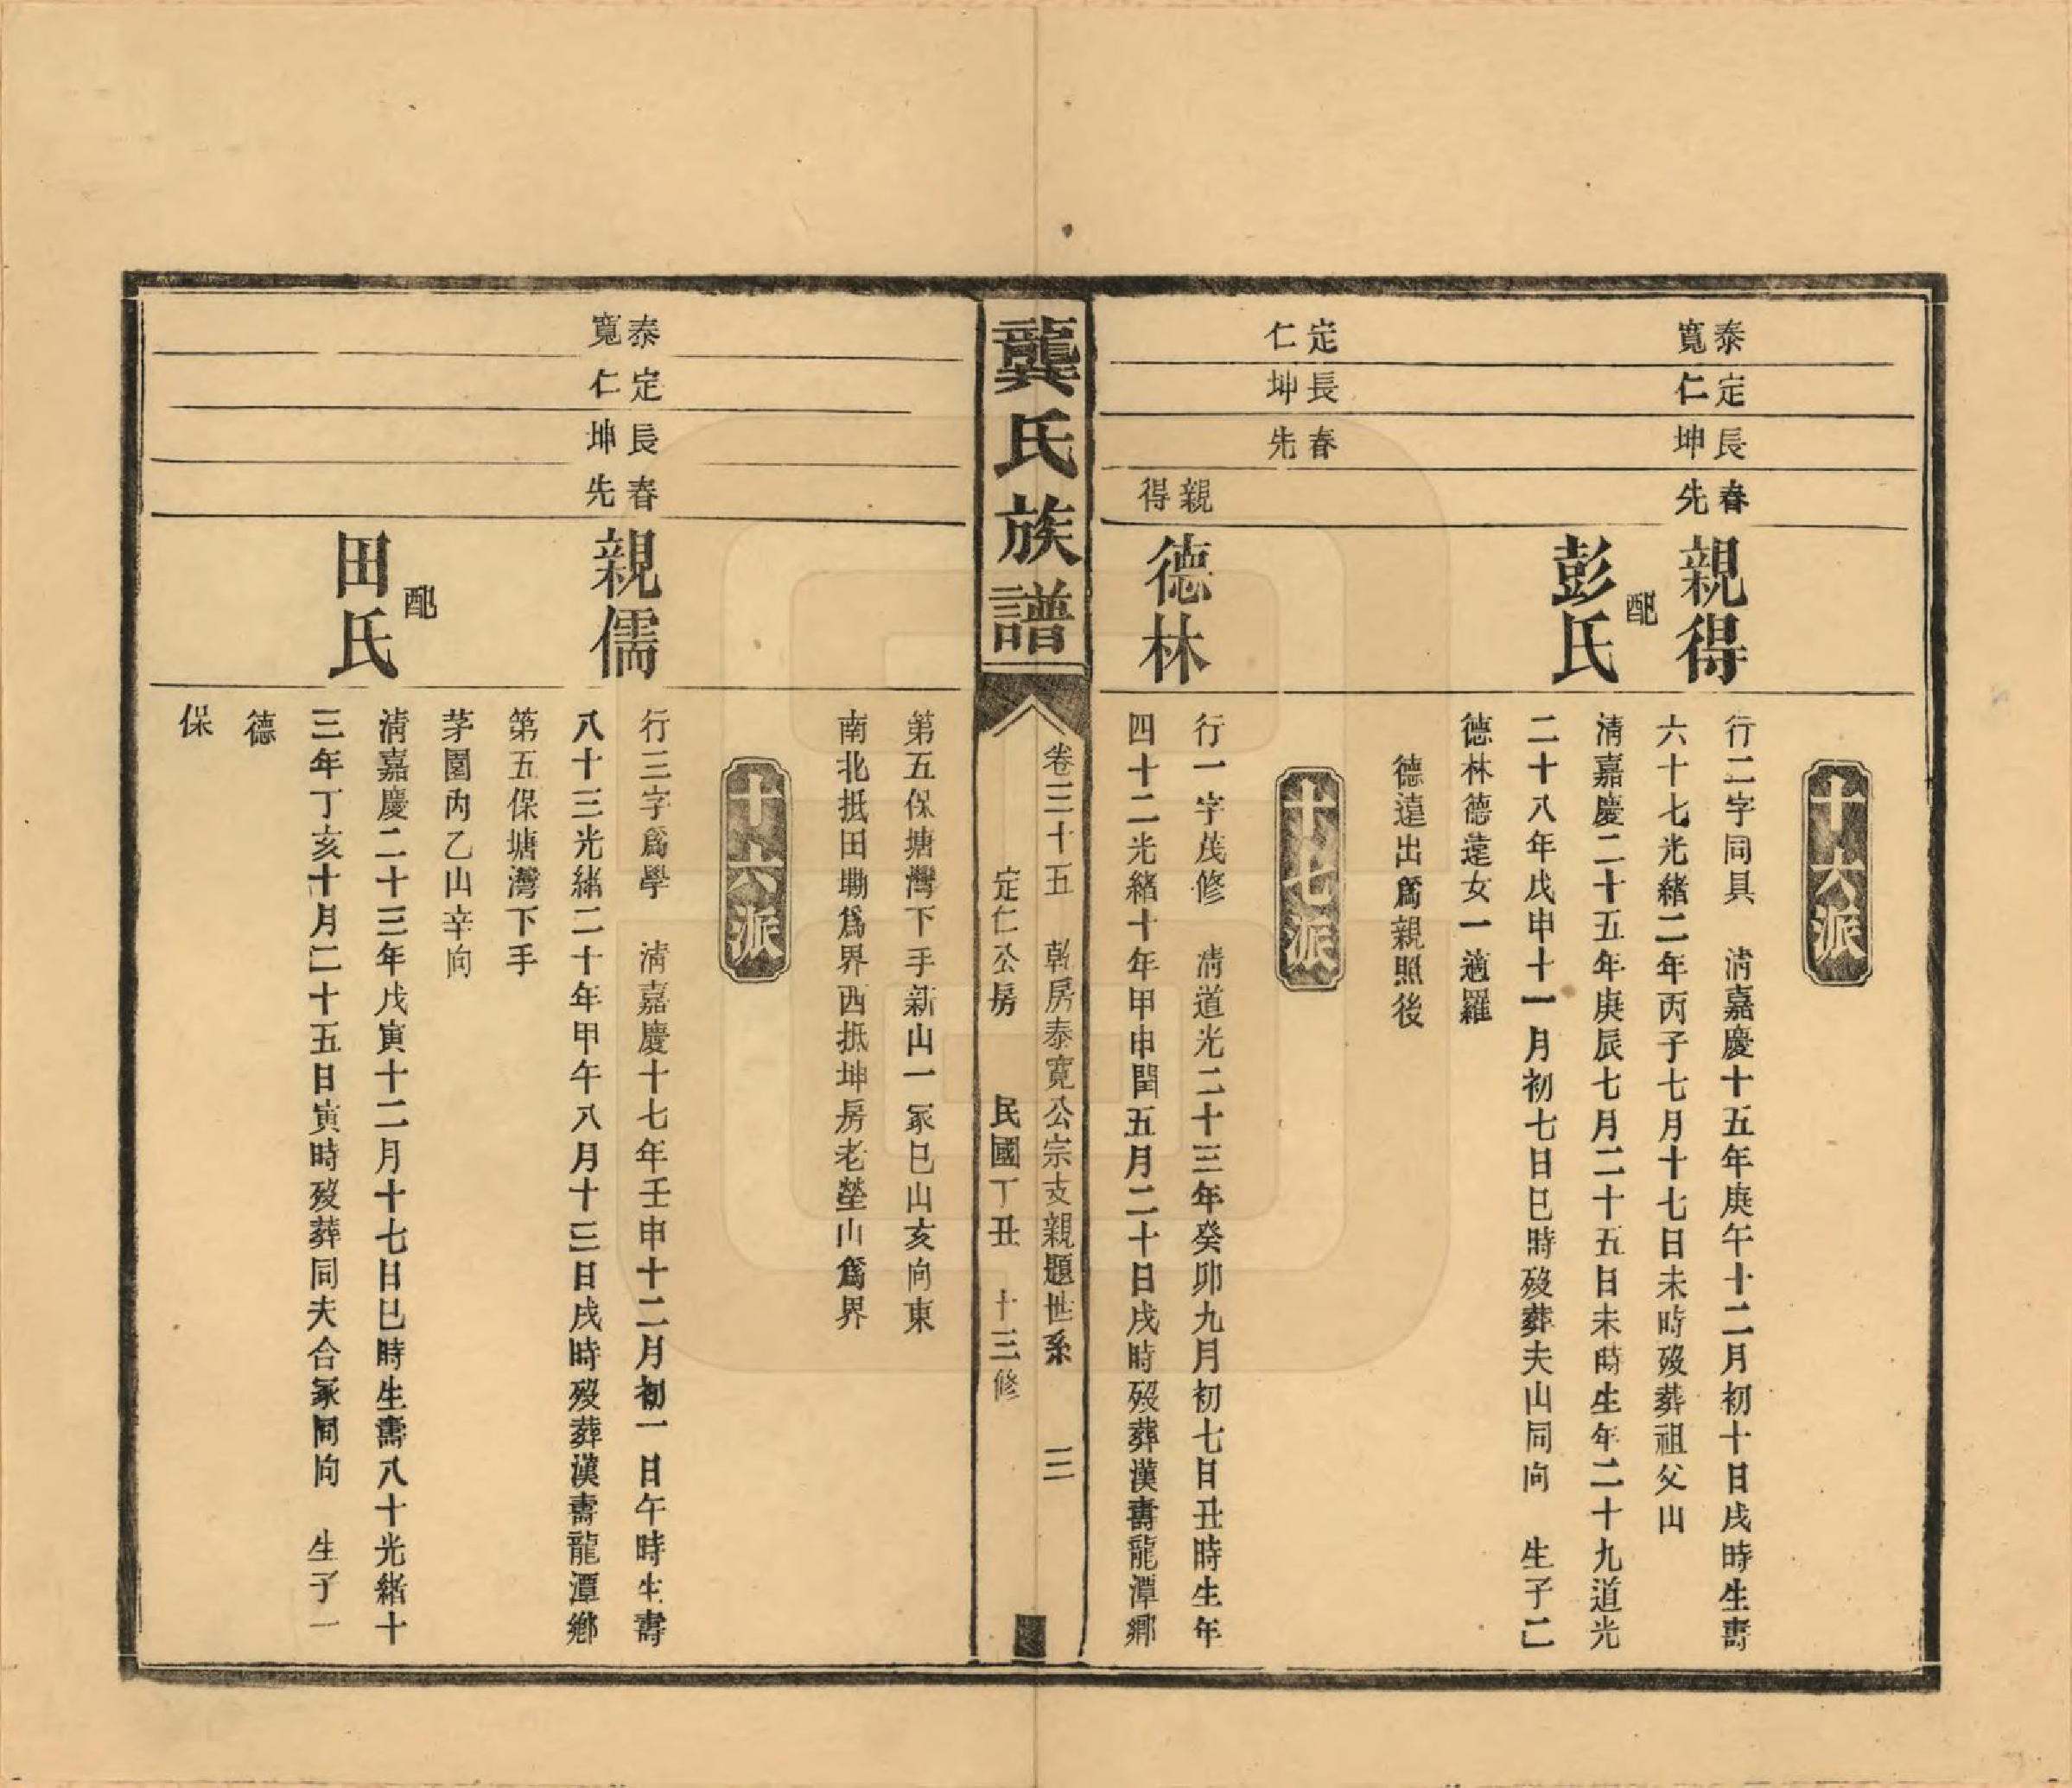 十六派
泰寬
定仁
長坤
春先
親得
行二字同具　清嘉慶十五年庚午十二月初十日戌時生壽
六十七光緒二年丙子七月十七日未時歿葬祖父山
配
彭氏
清嘉慶二十五年庚辰七月二十五日未時生年二十九道光
二十八年戊申十一月初七日巳時歿葬夫山同向　生子二
德林德遠女一適羅
德遠出爲親照後
十七派
定仁
長坤
春先
親得
德林
行一字茂修　清道光二十三年癸卯九月初七日丑時生年
四十二光緒十年甲申閏五月二十日戌時歿葬漢壽龍潭鄉
龔氏族譜
卷三十五　乾房泰寬公宗支親題世系　三
定仁公房　民國丁丑　十三修
第五保塘灣下手新山一冢巳山亥向東
南北抵田墈爲界西抵坤房老塋山爲界
十六派
泰寬
定仁
長坤
春先
親儒
行三字爲學　清嘉慶十七年壬申十二月初一日午時生壽
八十三光緒二十年甲午八月十三日戌時歿葬漢壽龍潭鄉
第五保塘灣下手
茅園內乙山辛向
配
田氏
清嘉慶二十三年戊寅十二月十七日巳時生壽八十光緒十
三年丁亥十月二十五日寅時歿葬同夫合冢同向　生子一
德
保